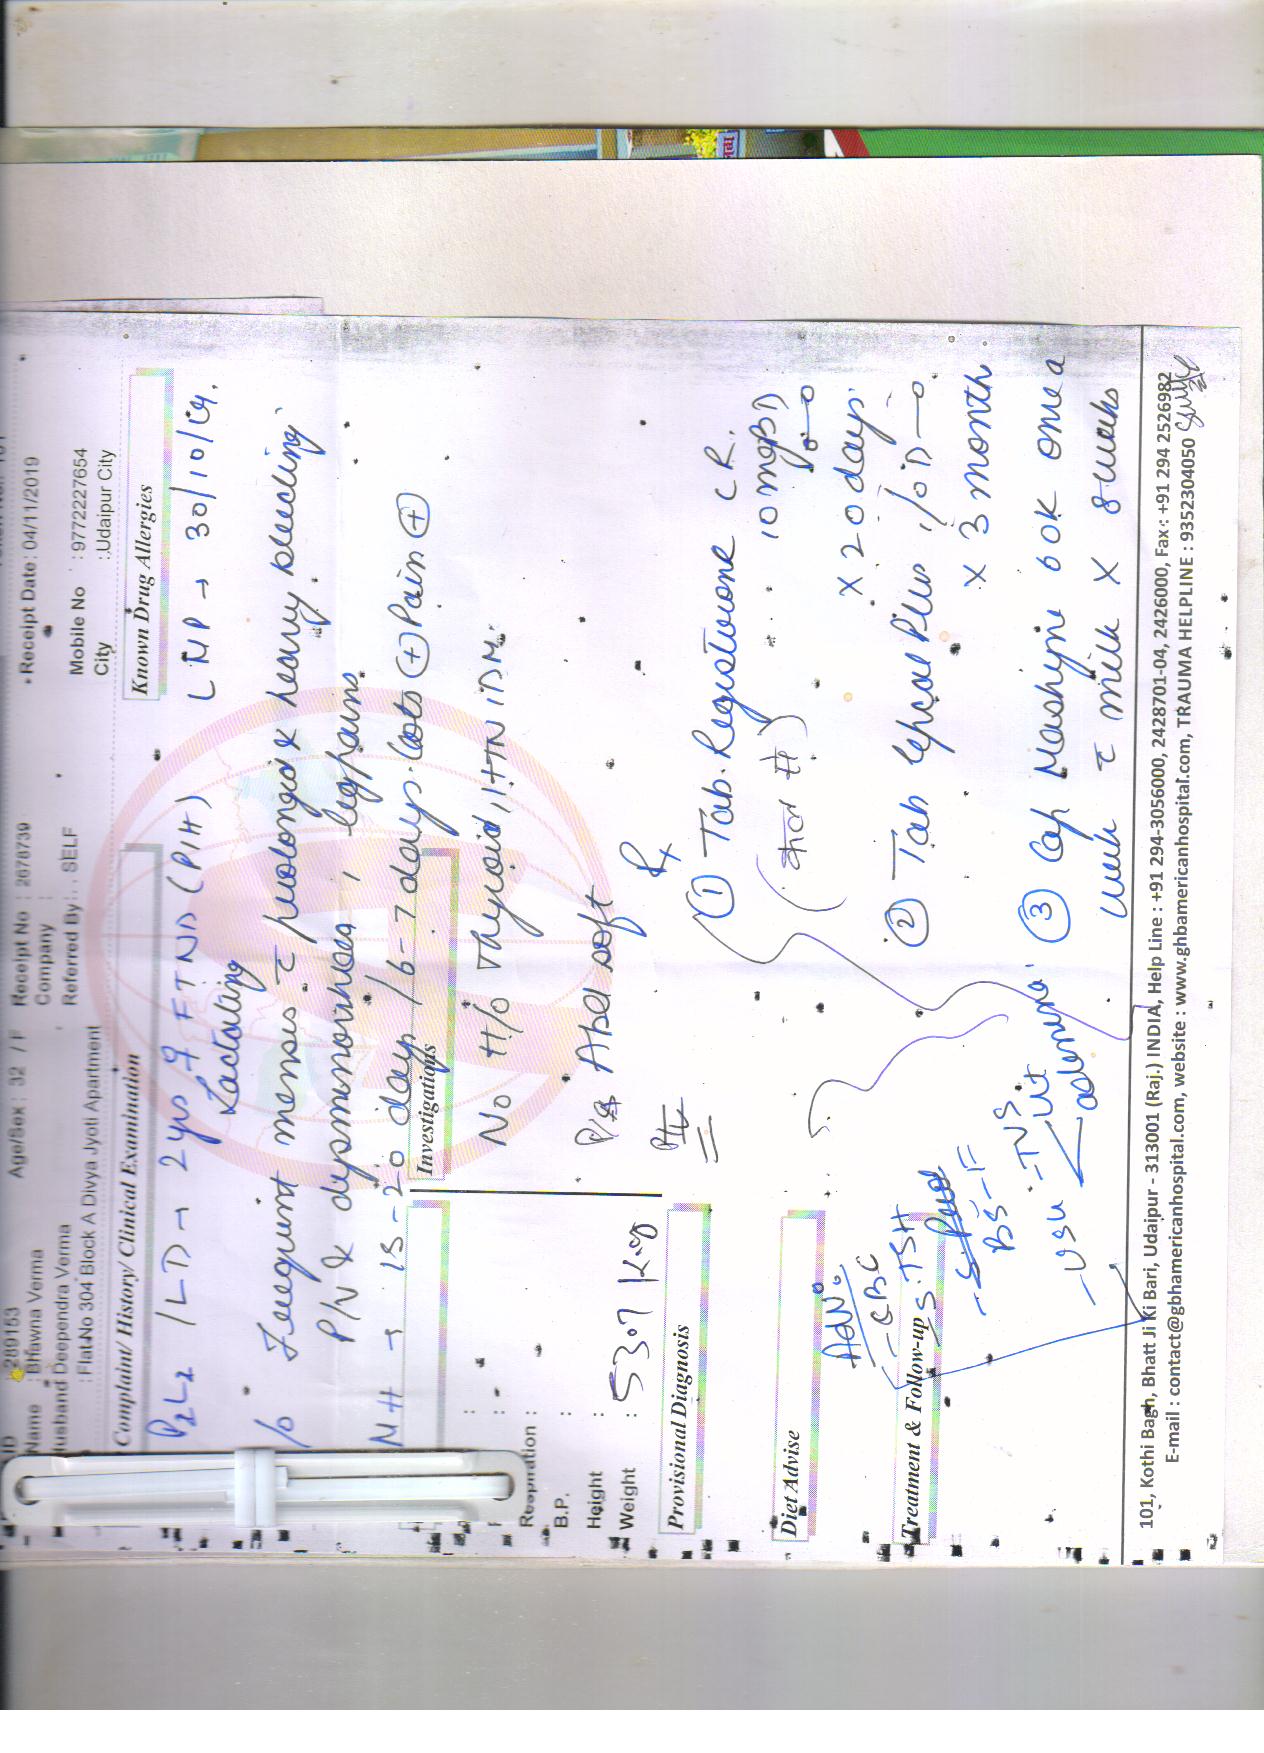 ID : 289153 Age/Sex : 32 / F Receipt No : 2678739 Receipt Date : 04/11/2019
Name : Bhawna Verma Company :
Husband Deependra Verma Referred By : . SELF Mobile No : 9772227654
: Flat No 304 Block A Divya Jyoti Apartment City : Udaipur City
Complaint/ History/ Clinical Examination
Known Drug Allergies
P2L2 /LD → 2yrs 9 FTND (PIH) LMP → 30/10/19.
Lactating
Frequent menses c prolonged & heavy bleeding
P/V & dysmenorrhoea, legpains
MH → 15-20 days /6-7 days. clots (+) Pain (+)
Investigations
No H/O Thyroid, HTN, DM.
P/A Abd soft
Respiration :
B.P. :
Height :
Weight : 53.7 Kg
Provisional Diagnosis
Rx
① Tab. Regestrone CR.
10 mg BD
x 20 days.
Diet Advise
Adv.
- CBC
Treatment & Follow-up
S. TSH
BS - F
- USG - TVS
② Tab Plus 1 OD
x 3 month
③ Cap 60K once a
week c milk x 8 weeks
101, Kothi Bagh, Bhatt Ji Ki Bari, Udaipur - 313001 (Raj.) INDIA, Help Line : +91 294-3056000, 2428701-04, 2426000, Fax : +91 294 2526982
E-mail : contact@gbhamericanhospital.com, website : www.gbhamericanhospital.com, TRAUMA HELPLINE : 9352304050